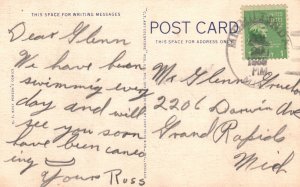 THIS SPACE FOR WRITING MESSAGES
POST CARD
THIS SPACE FOR ADDRESS ONLY
Dear Glenn
We have been
swimming every
day and will
see you soon
have been canoe
ing
Yours Russ
Mr Glenn
2206 Darwin Ave
Grand Rapids
Mich